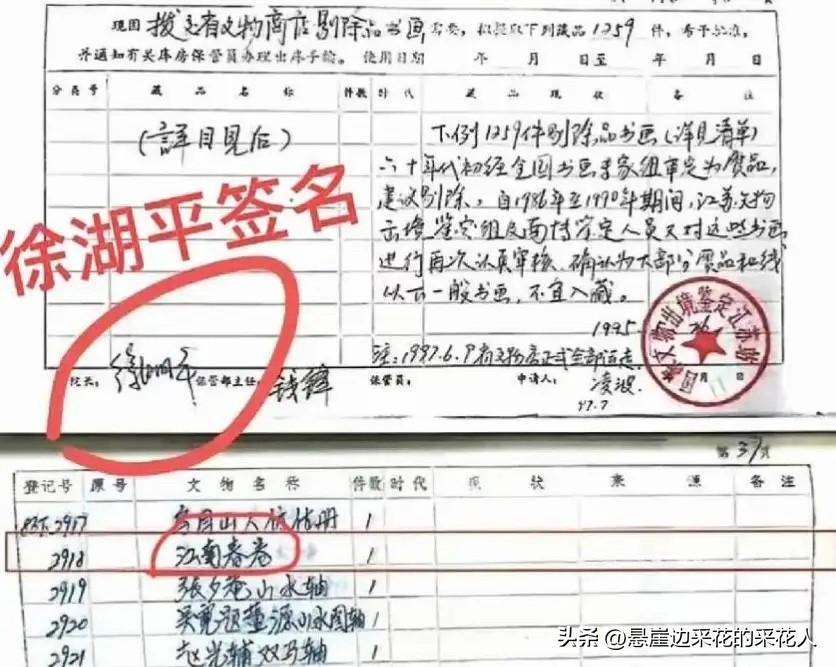 现因拨交省文物商店剔除品书画需要,拟提取下列藏品1259件,希予批准,
并通知有关库房保管员办理出库手续。使用日期 年 月 日至 年 月 日
分类号 藏品名称 件数 时代 藏品现状 备注
(详目见后)
下例1259件剔除品书画(详见清单)
六十年代初经全国书画专家组审定为
建议剔除,自1986年至1990年期间,江苏文物
出境鉴定组及南博鉴定人员又对这些书画
进行再次认真审核、确认为大部分
以下一般书画,不宜入藏。
徐湖平签名
1995
注:1997.6.
国家文物出境鉴定江苏站
院长: 徐湖平 保管部主任: 钱锋 保管员: 申请人: 凌波
97.7
第37页
登记号 原号 文物名称 件数 时代 现状 来源 备注
2917 1
2918 江南春卷 1
2919 张夕庵山水轴 1
2920 山水图轴 1
2921 双马轴
头条 @悬崖边采花的采花人